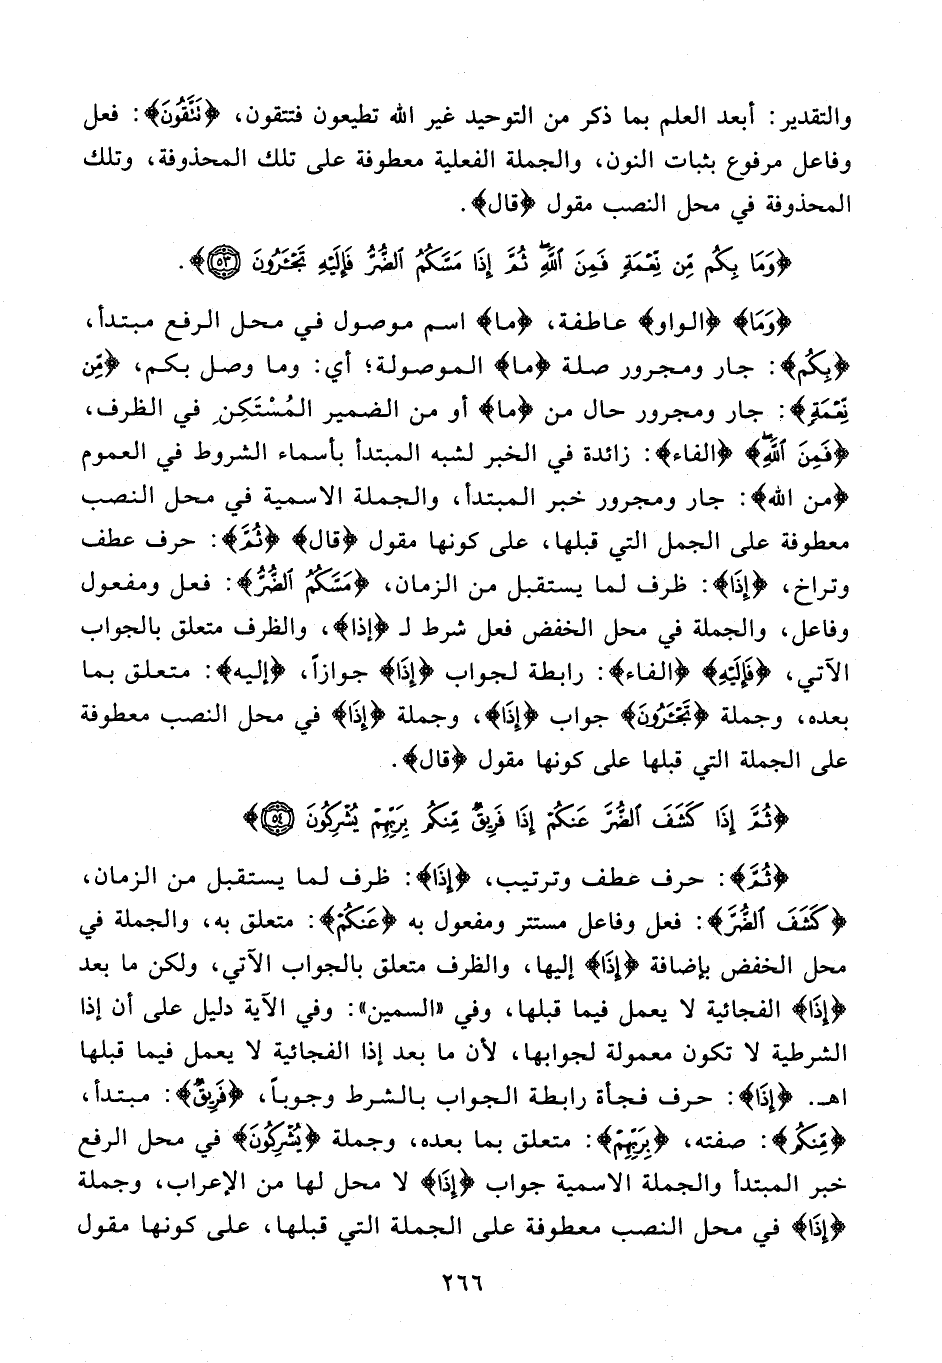 والتقدير: أبعد العلم بما ذكر من التوحيد غير الله تطيعون فتتقون، ﴿نَتَّقُونَ﴾: فعل
وفاعل مرفوع بثبات النون، والجملة الفعلية معطوفة على تلك المحذوفة، وتلك
المحذوفة في محل النصب مقول ﴿قال﴾.
﴿وَمَا بِكُم مِّن نِّعْمَةٍ فَمِنَ ٱللَّهِ ثُمَّ إِذَا مَسَّكُمُ ٱلضُّرُّ فَإِلَيْهِ تَجْـَٔرُونَ ٥٣﴾.
﴿وَمَا﴾ ﴿الواو﴾ عاطفة، ﴿ما﴾ اسم موصول في محل الرفع مبتدأ،
﴿بِكُم﴾: جار ومجرور صلة ﴿ما﴾ الموصولة؛ أي: وما وصل بكم، ﴿مِّن
نِّعْمَةٍ﴾: جار ومجرور حال من ﴿ما﴾ أو من الضمير المُسْتَكِنِ في الظرف،
﴿فَمِنَ ٱللَّهِ﴾ ﴿الفاء﴾: زائدة في الخبر لشبه المبتدأ بأسماء الشروط في العموم
﴿من الله﴾: جار ومجرور خبر المبتدأ، والجملة الاسمية في محل النصب
معطوفة على الجمل التي قبلها، على كونها مقول ﴿قال﴾ ﴿ثُمَّ﴾: حرف عطف
وتراخ، ﴿إِذَا﴾: ظرف لما يستقبل من الزمان، ﴿مَسَّكُمُ ٱلضُّرُّ﴾: فعل ومفعول
وفاعل، والجملة في محل الخفض فعل شرط لـ ﴿إذا﴾، والظرف متعلق بالجواب
الآتي، ﴿فَإِلَيْهِ﴾ ﴿الفاء﴾: رابطة لجواب ﴿إِذَا﴾ جوازاً، ﴿إليه﴾: متعلق بما
بعده، وجملة ﴿تَجْـَٔرُونَ﴾ جواب ﴿إِذَا﴾، وجملة ﴿إِذَا﴾ في محل النصب معطوفة
على الجملة التي قبلها على كونها مقول ﴿قال﴾.
﴿ثُمَّ إِذَا كَشَفَ ٱلضُّرَّ عَنكُمْ إِذَا فَرِيقٌ مِّنكُم بِرَبِّهِمْ يُشْرِكُونَ ٥٤﴾
﴿ثُمَّ﴾: حرف عطف وترتيب، ﴿إِذَا﴾: ظرف لما يستقبل من الزمان،
﴿كَشَفَ ٱلضُّرَّ﴾: فعل وفاعل مستتر ومفعول به ﴿عَنكُمْ﴾: متعلق به، والجملة في
محل الخفض بإضافة ﴿إِذَا﴾ إليها، والظرف متعلق بالجواب الآتي، ولكن ما بعد
﴿إِذَا﴾ الفجائية لا يعمل فيما قبلها، وفي «السمين»: وفي الآية دليل على أن إذا
الشرطية لا تكون معمولة لجوابها، لأن ما بعد إذا الفجائية لا يعمل فيما قبلها
اهـ. ﴿إِذَا﴾: حرف فجأة رابطة الجواب بالشرط وجوباً، ﴿فَرِيقٌ﴾: مبتدأ،
﴿مِّنكُم﴾: صفته، ﴿بِرَبِّهِمْ﴾: متعلق بما بعده، وجملة ﴿يُشْرِكُونَ﴾ في محل الرفع
خبر المبتدأ والجملة الاسمية جواب ﴿إِذَا﴾ لا محل لها من الإعراب، وجملة
﴿إِذَا﴾ في محل النصب معطوفة على الجملة التي قبلها، على كونها مقول
٢٦٦